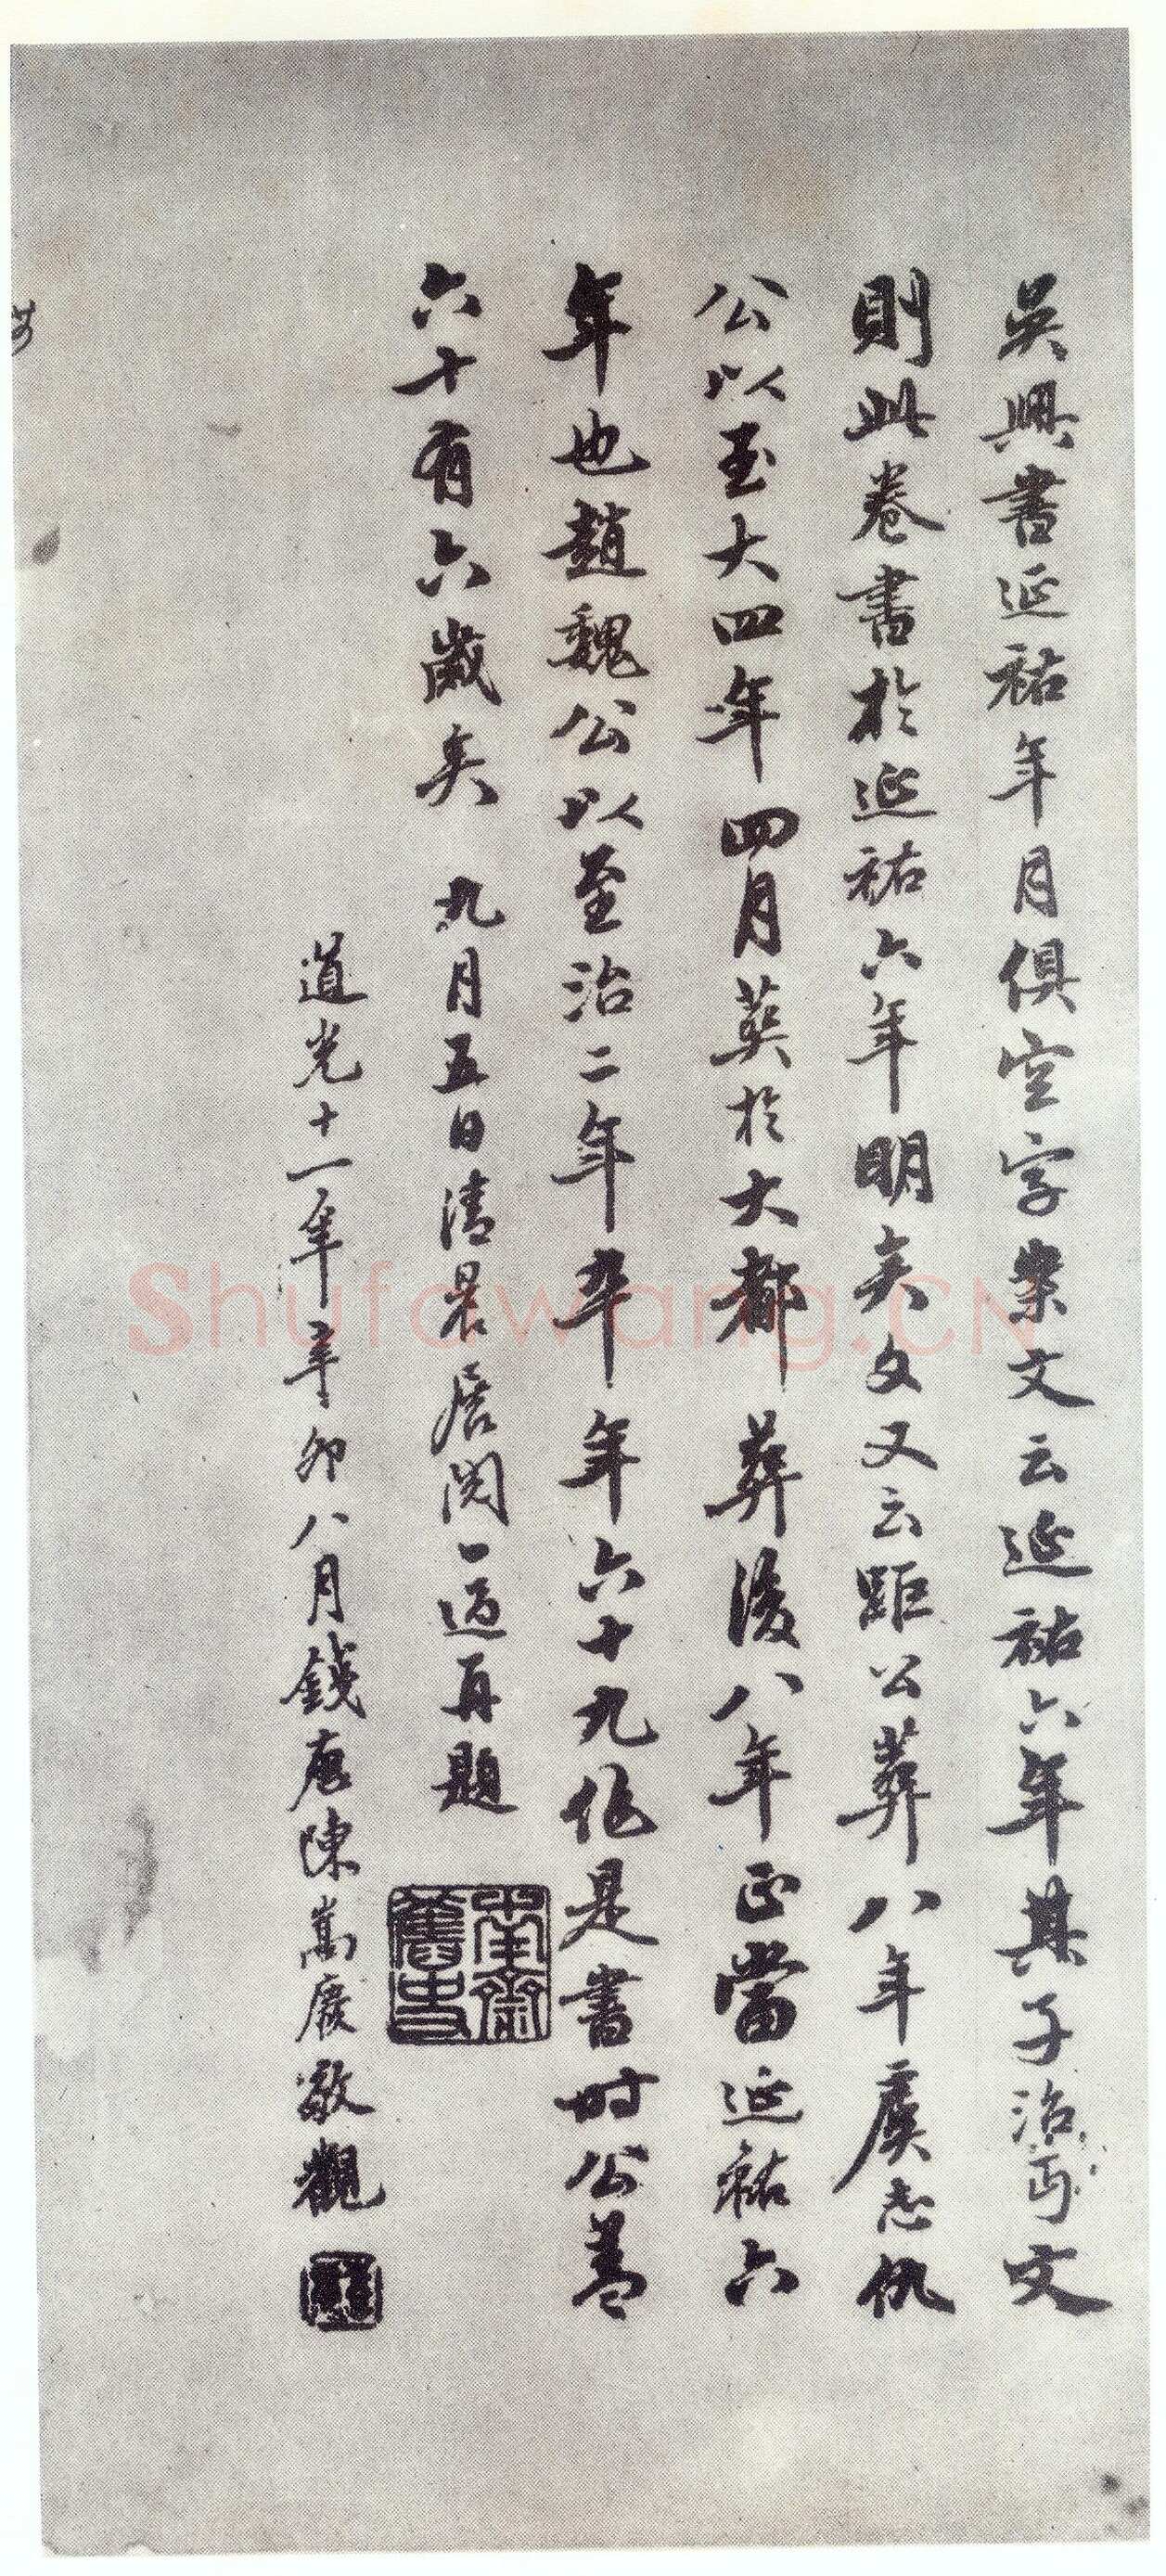 吳興書延祐年月俱空字案文云延祐六年其子治丐文
則此卷書於延祐六年明矣文又云距公葬八年虞志仇
公以至大四年四月薨於大都葬後八年正當延祐六
年也趙魏公以至治二年卒年六十九作是書時公蓋
六十有六歲矣 九月五日清晨居閱一過再題
南齋舊史
道光十一年辛卯八月錢唐陳嵩慶敬觀
Shufawang.CN